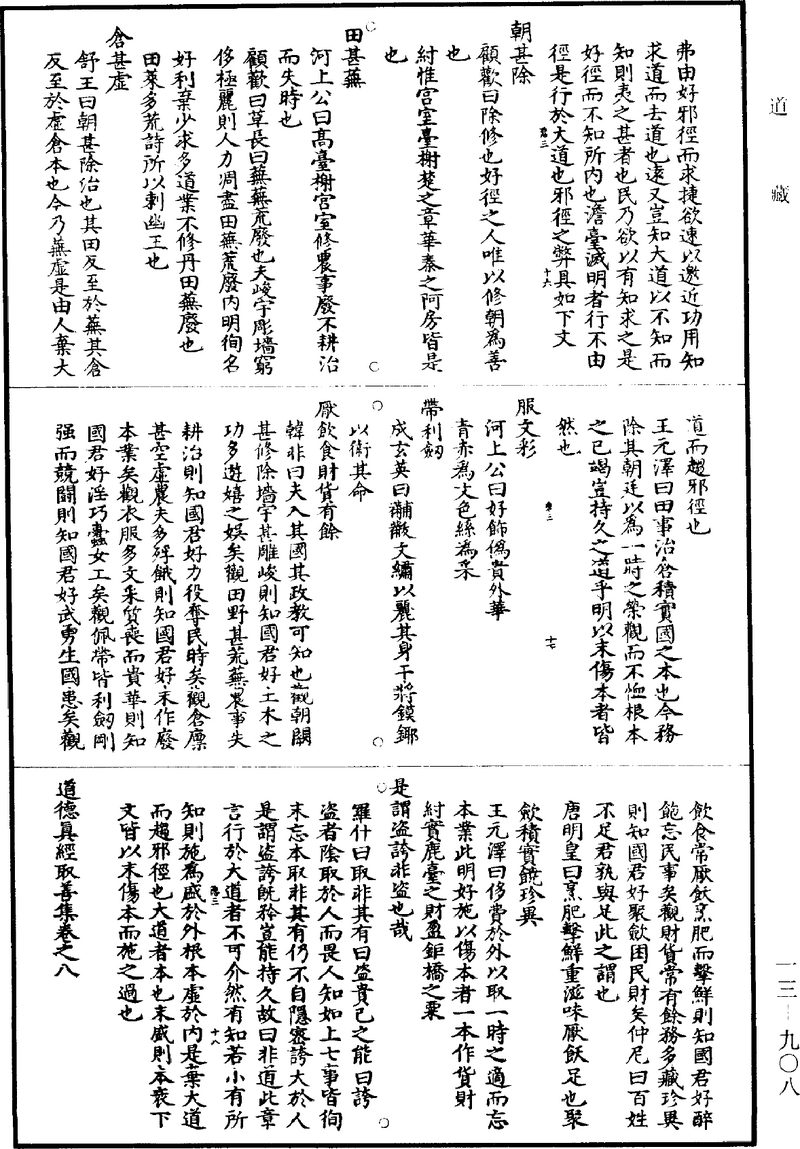 道藏
弗由好邪徑而求捷欲速以邀近功用知
求道而去道也遠又豈知大道以不知而
知則夷之甚者也民乃欲以有知求之是
好徑而不知所內也澹臺滅明者行不由
徑是行於大道也邪徑之弊具如下文
十六
朝甚除
顧歡曰除修也好徑之人唯以修朝為善
也
紂惟宮室臺榭楚之章華秦之阿房皆是
也
田甚蕪
河上公曰高臺榭宮室修農事廢不耕治
而失時也
顧歡曰草長曰蕪蕪荒廢也夫峻宇彫墻窮
侈極麗則人力凋盡田蕪荒廢內明徇名
好利棄少求多道業不修丹田蕪廢也
田萊多荒詩所以刺幽王也
倉甚虛
舒王曰朝甚除治也其田反至於蕪其倉
反至於虛倉本也今乃蕪虛是由人棄大
道而趨邪徑也
王元澤曰田事治倉積實國之本也今務
除其朝廷以為一時之榮觀而不恤根本
之已竭豈持久之道乎明以末傷本者皆
然也
十七
服文彩
河上公曰好飾偽貴外華
青赤為文色絲為采
帶利劒
成玄英曰黼黻文繡以麗其身干將鏌鎁
以衛其命
厭飲食財貨有餘
韓非曰夫入其國其政教可知也觀朝闕
甚修除墻宇甚雕峻則知國君好土木之
功多遊嬉之娛矣觀田野甚荒蕪農事失
耕治則知國君好力役奪民時矣觀倉廩
甚空虛農夫多殍餓則知國君好末作廢
本業矣觀衣服多文采質喪而貴華則知
國君好淫巧蠹女工矣觀佩帶皆利劒剛
强而競鬭則知國君好武勇生國患矣觀
飲食常厭飫烹肥而擊鮮則知國君好醉
飽忘民事矣觀財貨常有餘務多藏珍異
則知國君好聚斂困民財矣仲尼曰百姓
不足君孰與足此之謂也
唐明皇曰烹肥擊鮮重滋味厭飫足也聚
歛積實饒珍異
王元澤曰侈費於外以取一時之適而忘
本業此明好施以傷本者一本作貨財
紂實鹿臺之財盈鉅橋之粟
是謂盜誇非盜也哉
羅什曰取非其有曰盜貴己之能曰誇
盜者陰取於人而畏人知如上七事皆徇
末忘本取非其有仍不自隱密誇大於人
是謂盜誇旣矜豈能持久故曰非道此章
言行於大道者不可介然有知若小有所
十八
知則施為盛於外根本虛於內是棄大道
而趨邪徑也大道者本也末盛則本衰下
文皆以末傷本而施之過也
道德真經取善集卷之八
一三—九〇八